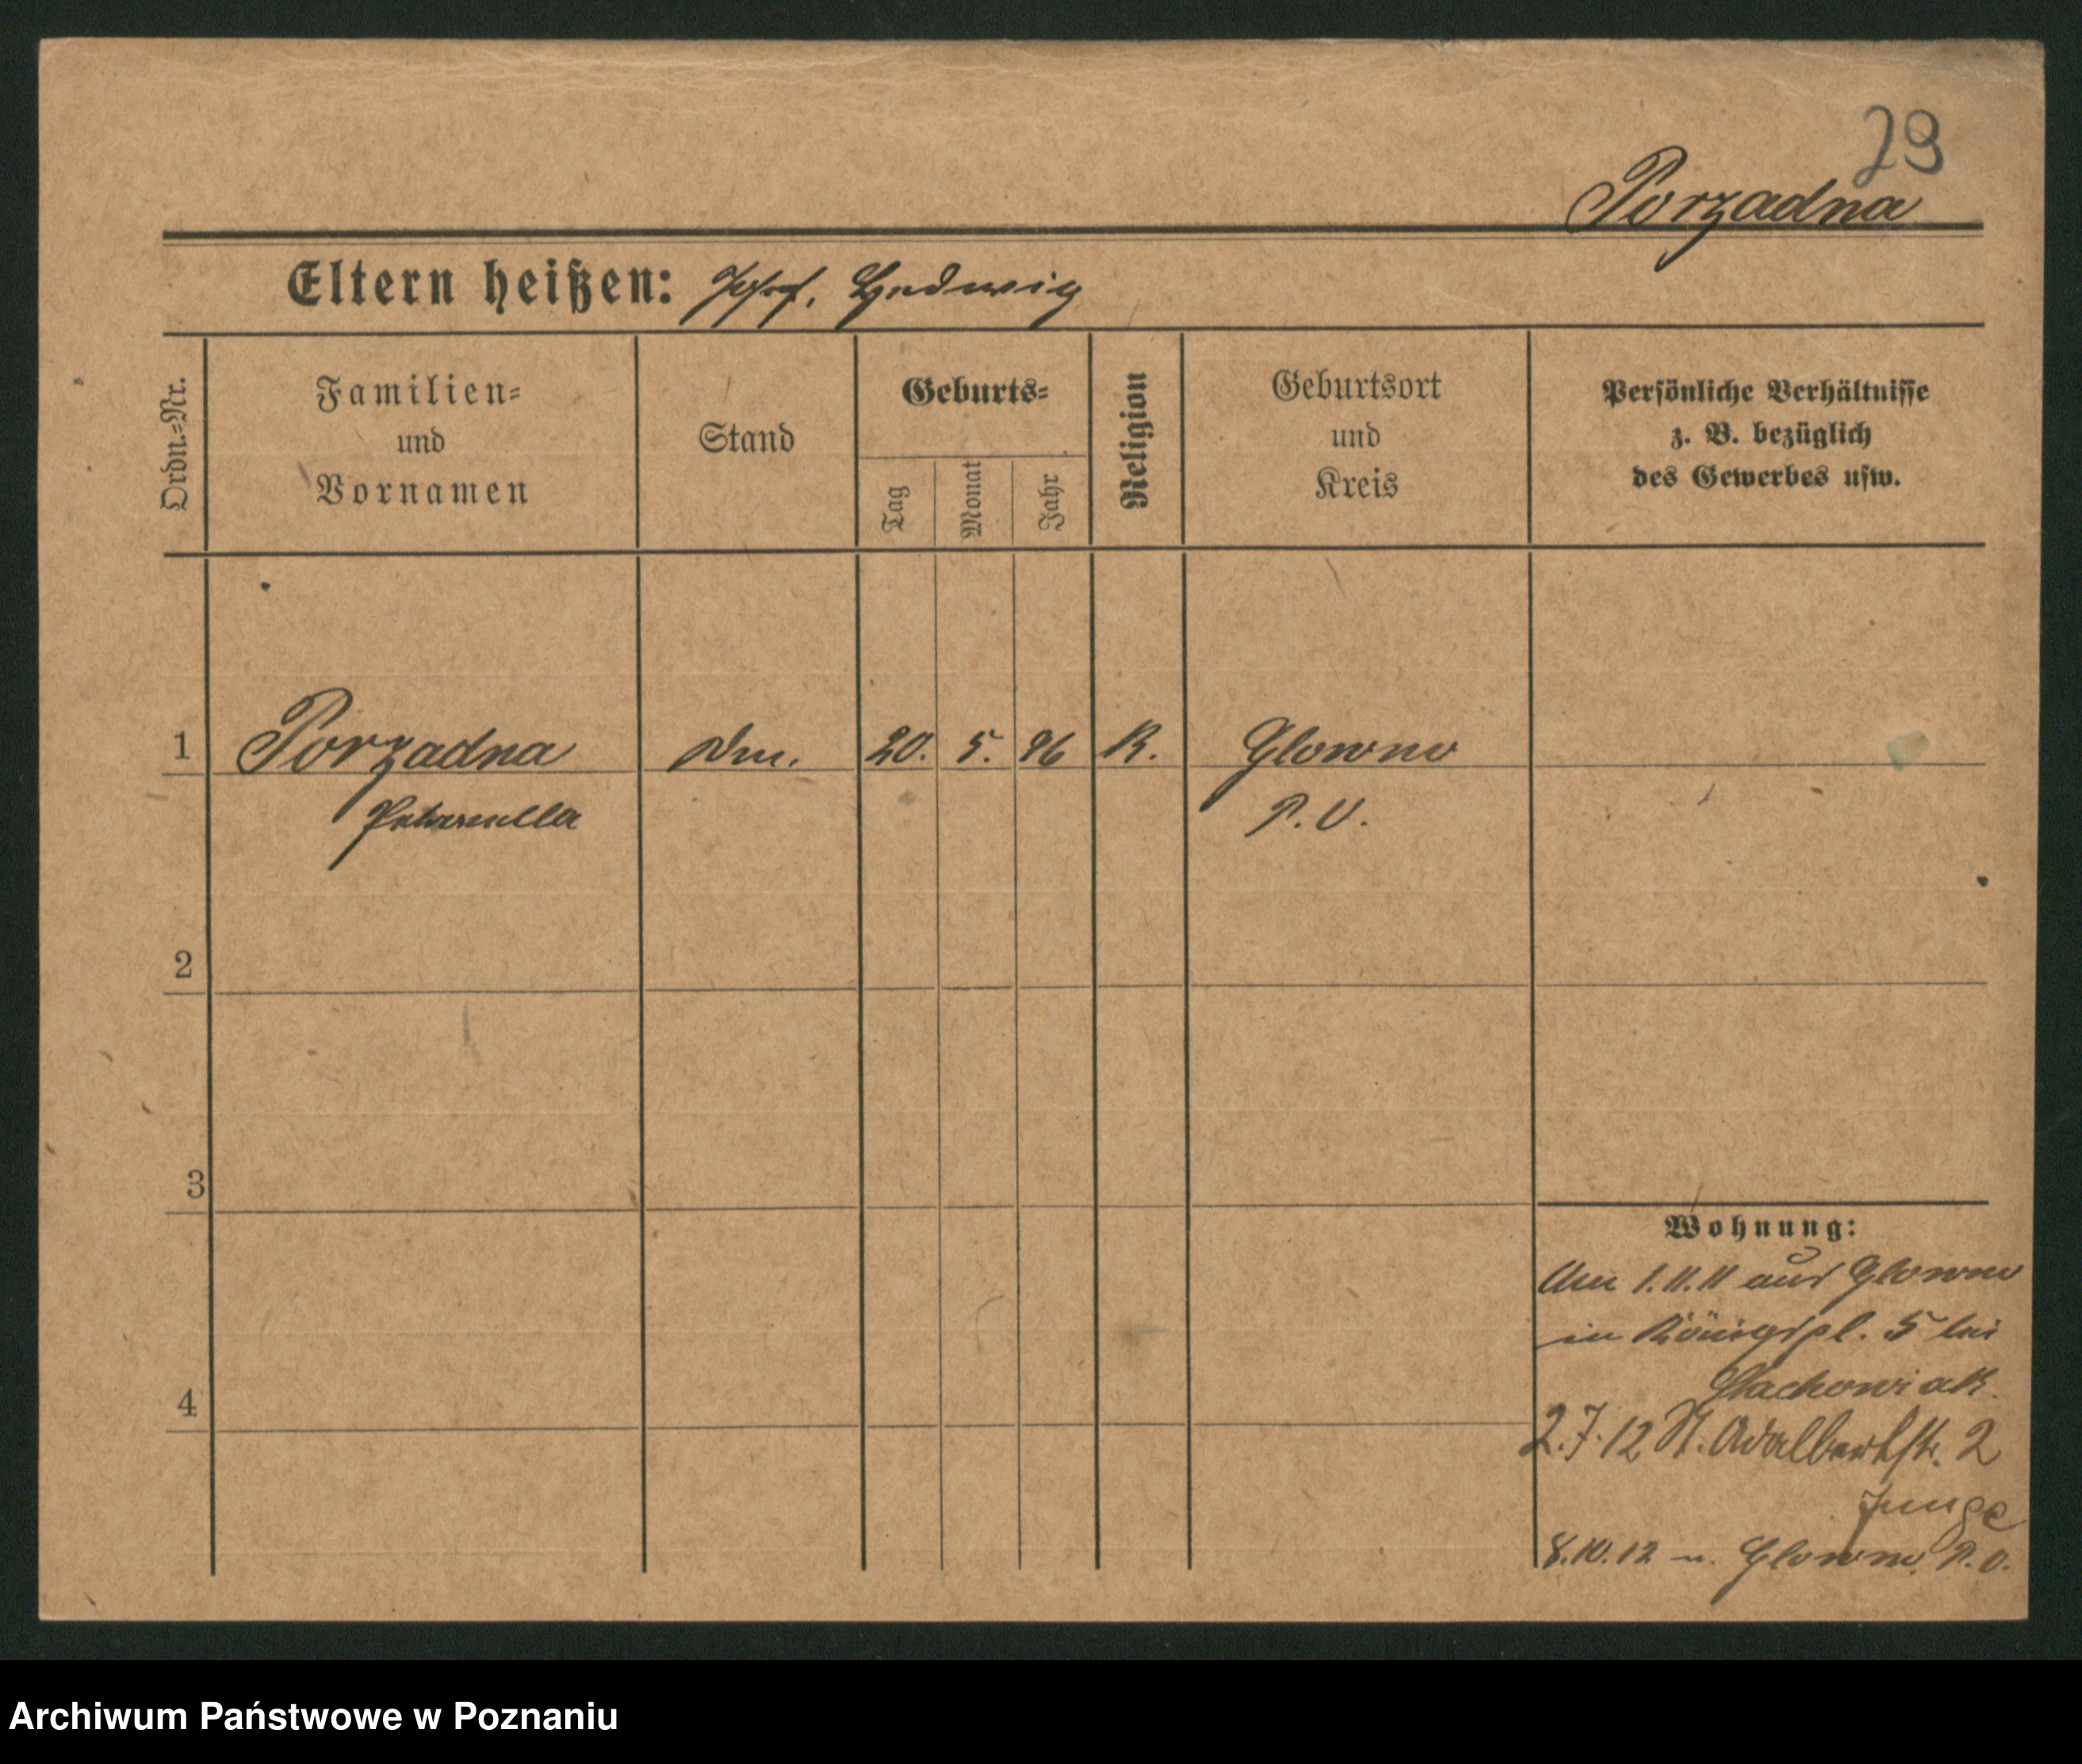 29
Porzadna
Eltern heißen: Josef, Hedwig
Ordn.-Nr.
Familien-
und
Vornamen
Stand
Geburts-
Tag
Monat
Jahr
Religion
Geburtsort
und
Kreis
Persönliche Verhältnisse
z. B. bezüglich
des Gewerbes usw.
1 Porzadna 20. 5. 96 K. Glowno
Petronella P. O.
2
3
4
Wohnung:
Am 1.11.11 aus Glowno
in Königspl. 5 bei
Stachowiak.
2.7.12 St. Adalbertstr. 2
Junge
8.10.12 n. Glowno, P. O.
Archiwum Państwowe w Poznaniu